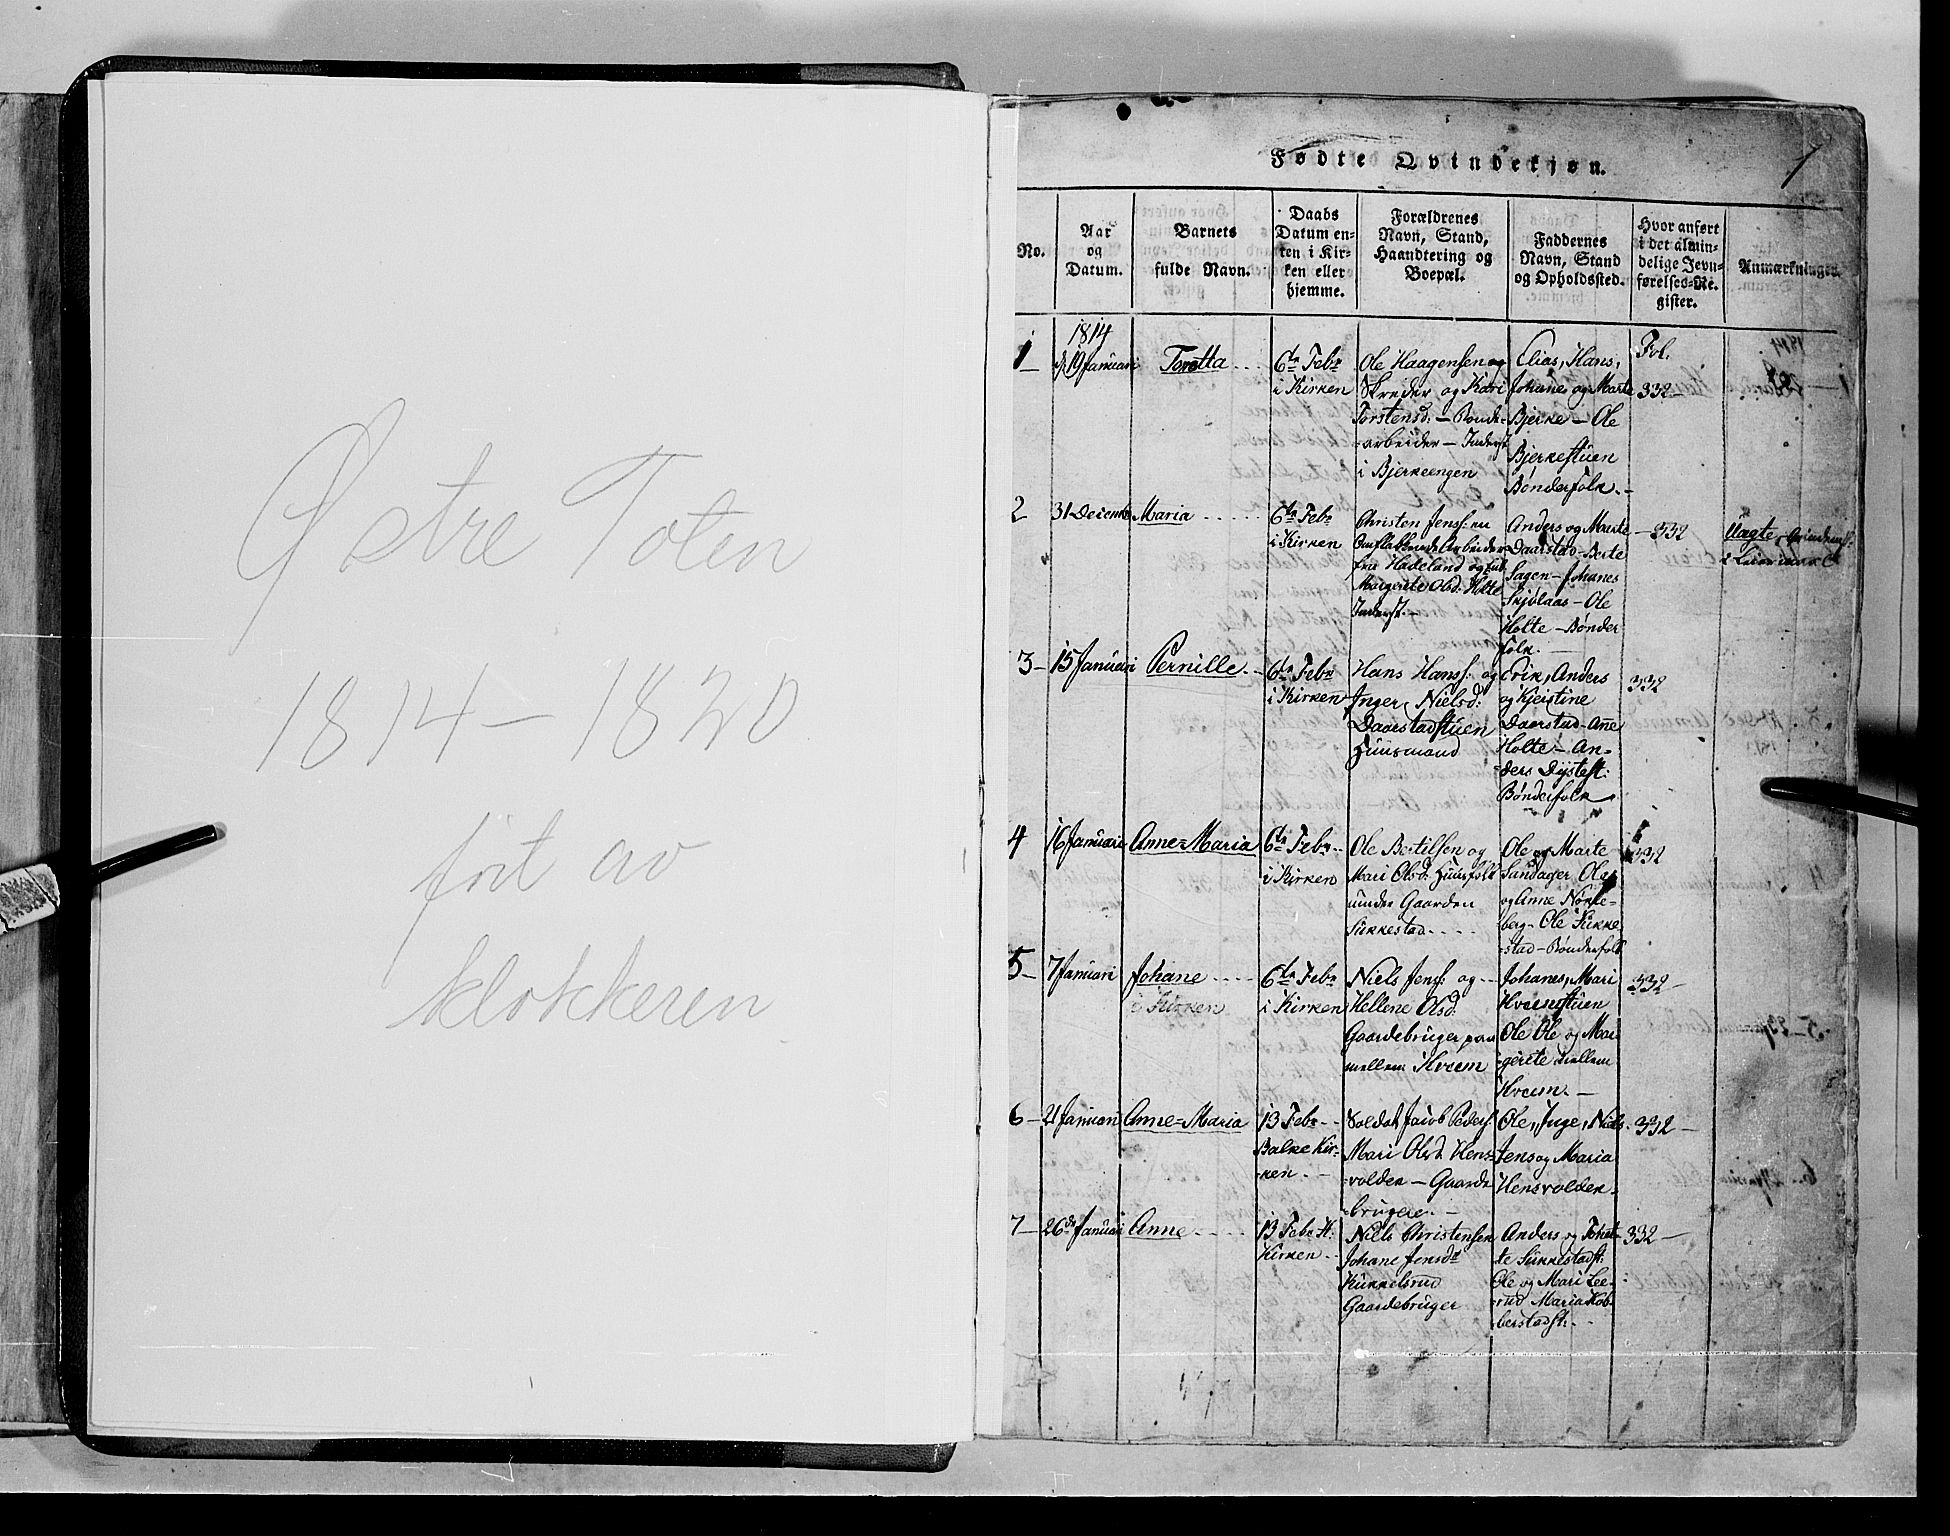 Østre Toten
1814–1820
ført av
klokkeren
Fødte Qvindekjøn.
No.
Aar
og
Datum.
Barnets
fulde Navn.
Daabs
Datum en-
ten i Kir-
ken eller
hjemme.
Forældrenes
Navn, Stand,
Haandtering og
Boepæl.
Faddernes
Navn, Stand
og Opholdssted.
Hvor anført
i det almin-
delige Jevn-
førelses-Re-
gister.
Anmærkninger.
1814
1
19 Januari
Toretta
6te Febr
i Kirken
Ole Haagensen og
Skreder og Kari
Torstensd: – Bonde-
-arbeider – Inderst
i Bjerkeengen
Elias, Hans,
Johane og Marte
Bjerke – Ole
Bjerkestuen
Bønderfolk. –
Fol.
332
2
31 Decemb
Maria
6te Febr
i Kirken
Christen Jens: en
Arbeider
fra Hadeland og
Margrete Olsd: Holte
Inderst. –
Anders og Marte
Daarstad – Berte
Sagen – Johanes
Skjølaas – Ole
Holte – Bønder
folk. –
332
Uægte
i Leiermaal
3 –
15 Januari
Pernille
6te Febr
i Kirken
Hans Hans: og
Inger Nielsd:
Daarstadstuen
Huusmand
Erik, Anders
og Kjerstine
Daarstad – Ane
Holte – An-
ders Dystest:
Bønderfolk
332
4
16 Januari
Anne=Maria
6te Febr
i Kirken
Ole Bertelsen og
Mari Olsd: Huusfolk
under Gaarden
Sukkestad
Ole og Marte
Sandager Ole
og Anne Nøkke-
berg – Ole Sukke
-stad – Bønderfolk
332
5 –
7 Januari
Johane
i Kirken
6te Febr
i Kirken
Niels Jens: og
Hellene Olsd:
Gaardebruger paa
mellem Hveem
Johanes, Mari
Hveemstuen
Ole Ole og Mar-
grete mellem
Hveem. –
332 –
6 –
21 Januari
Anne=Maria
13 Febr
Balke Kir-
ken
Soldat Jacob Peders:
Mari Olsd: Hens-
-volden – Gaarde
-brugere. –
Ole, Inge, Niels
Jens og Maria
Hensvolden
332 –
7 –
26de Januari
Anne
13 Febr H:
Kirken
Niels Christensen
Johane Jensdr
Kukkelsrud
Gaardebruger
Anders og
Sukkestadst:
Ole og Mari Lee-
-rud Maria Kob-
berstadst:
332 –